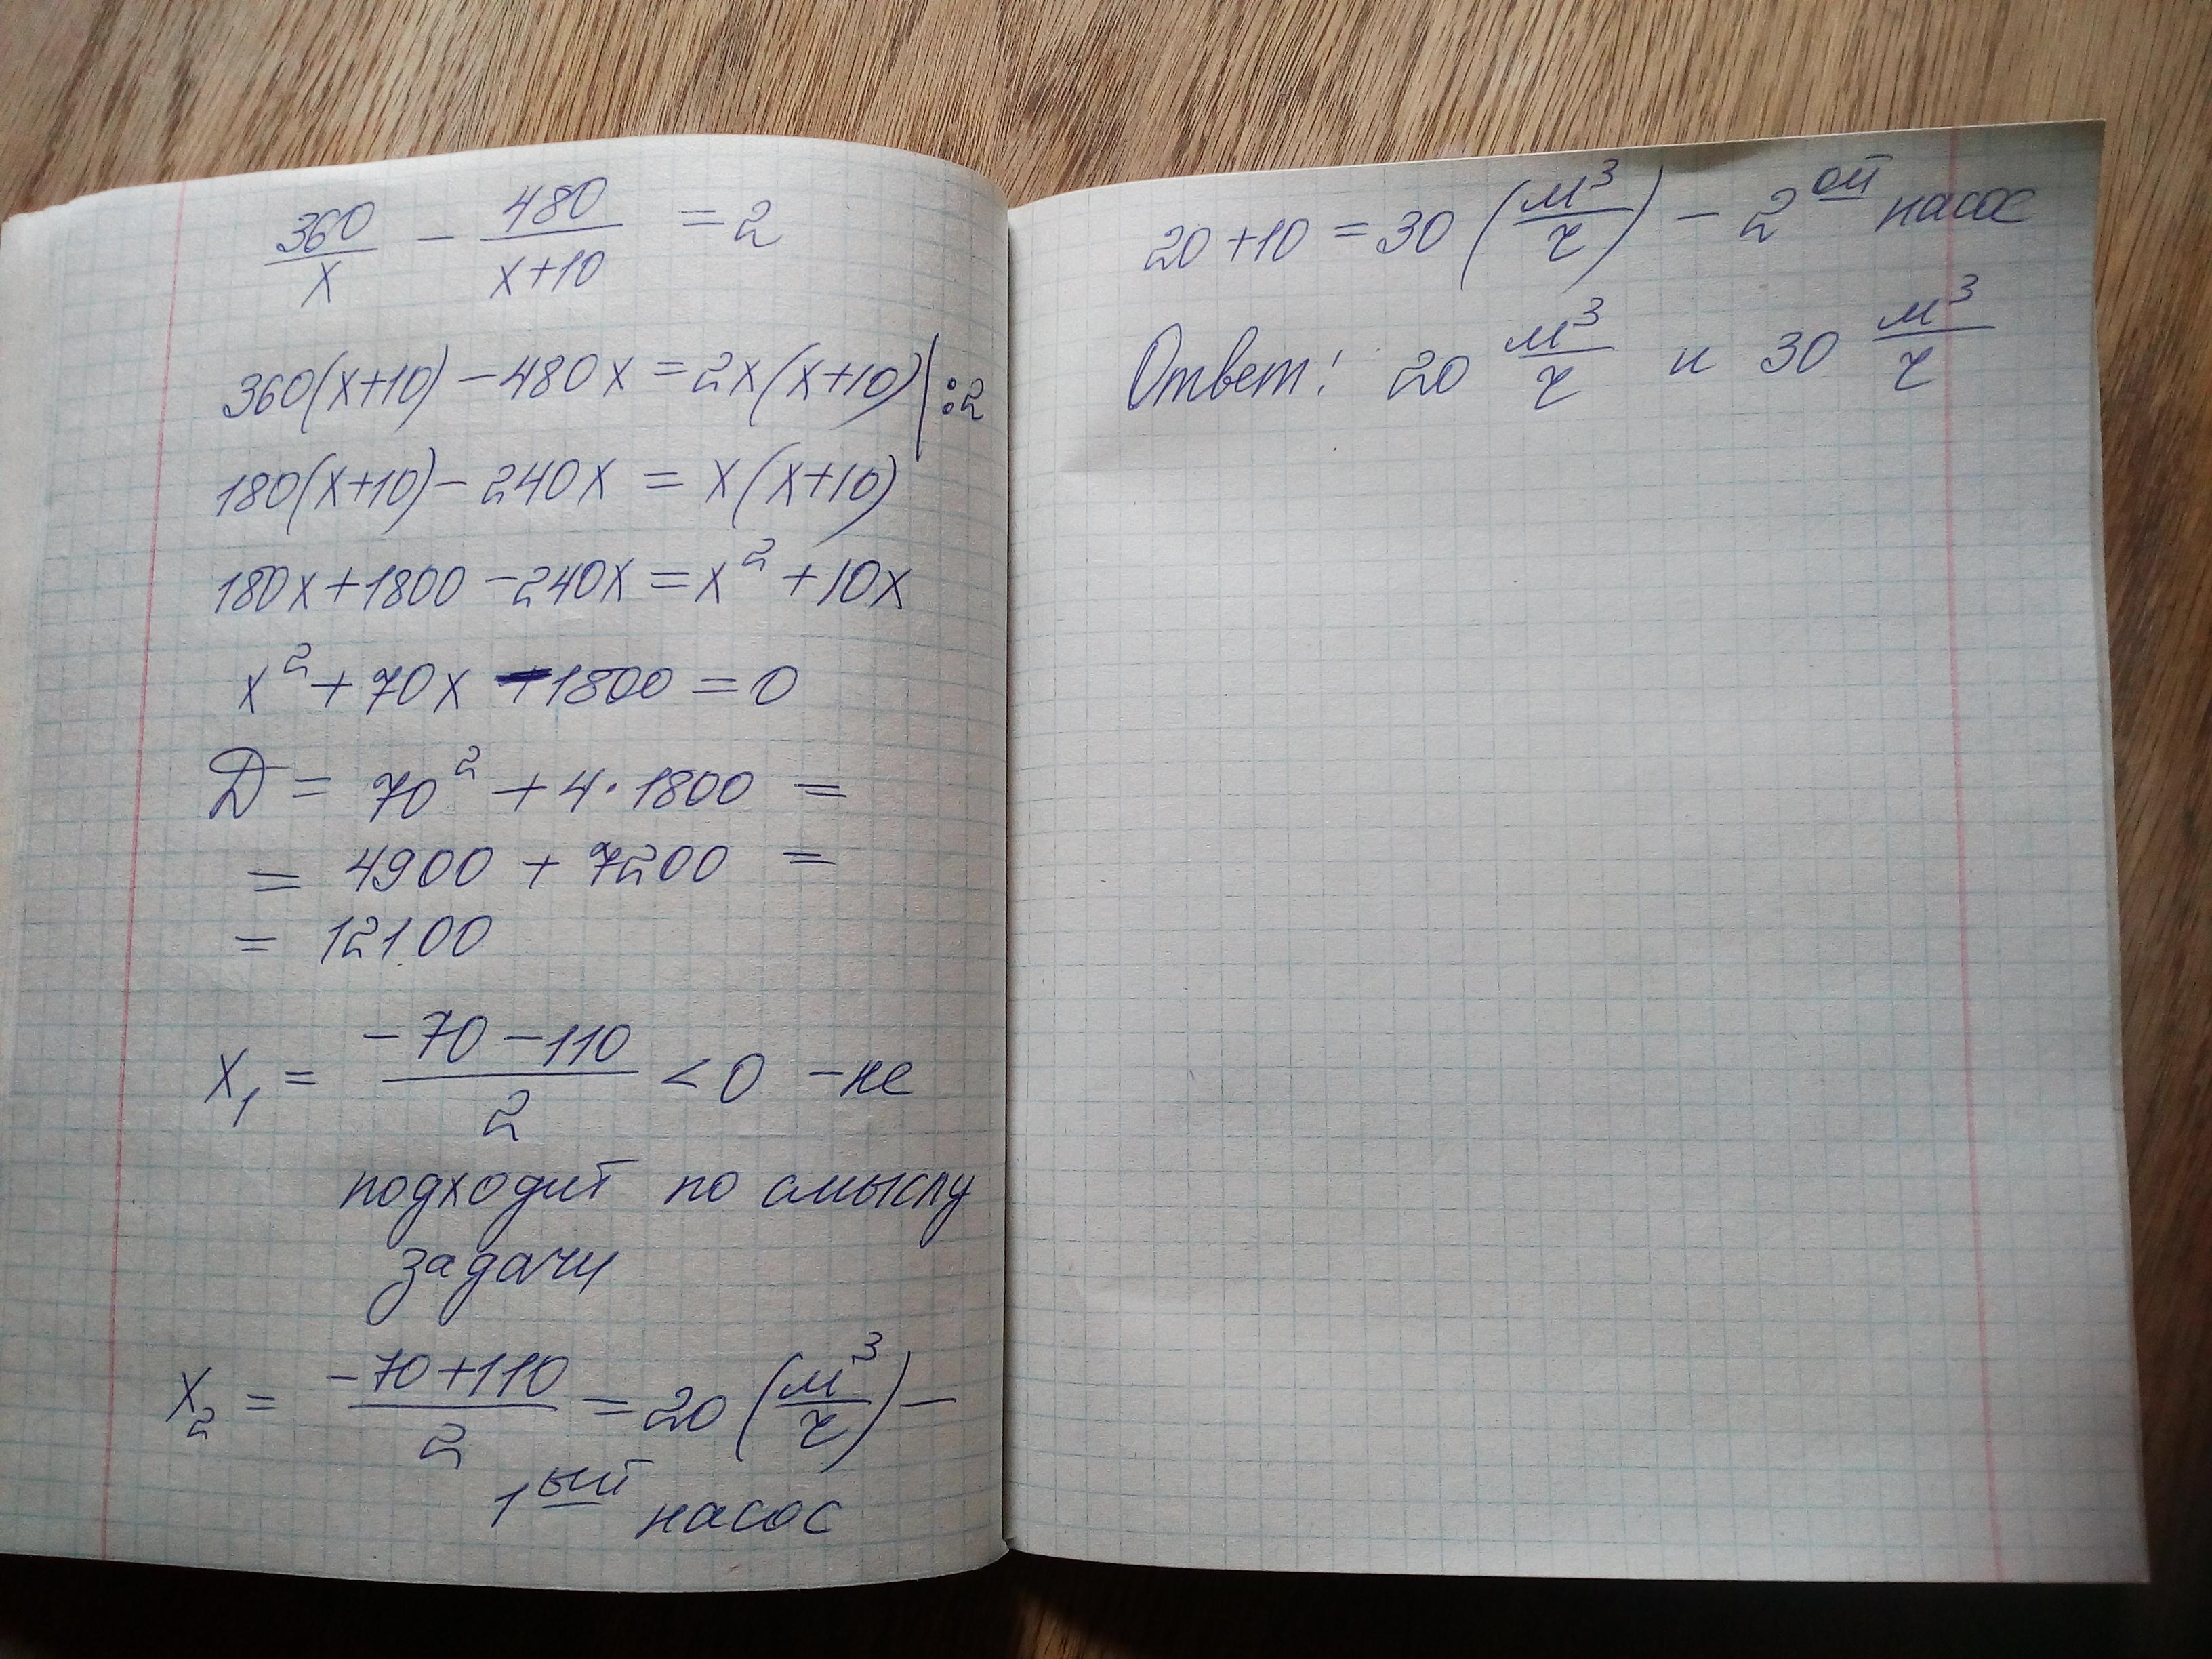 360/x - 480/(x+10) = 2
360(x+10) - 480x = 2x(x+10) | :2
180(x+10) - 240x = x(x+10)
180x + 1800 - 240x = x² + 10x
x² + 70x - 1800 = 0
D = 70² + 4·1800 =
= 4900 + 7200 =
= 12100
x₁ = (-70 - 110)/2 < 0 - не
подходит по смыслу
задачи
x₂ = (-70 + 110)/2 = 20 (м³/ч) -
1ый насос
20 + 10 = 30 (м³/ч) - 2ой насос
Ответ: 20 м³/ч и 30 м³/ч